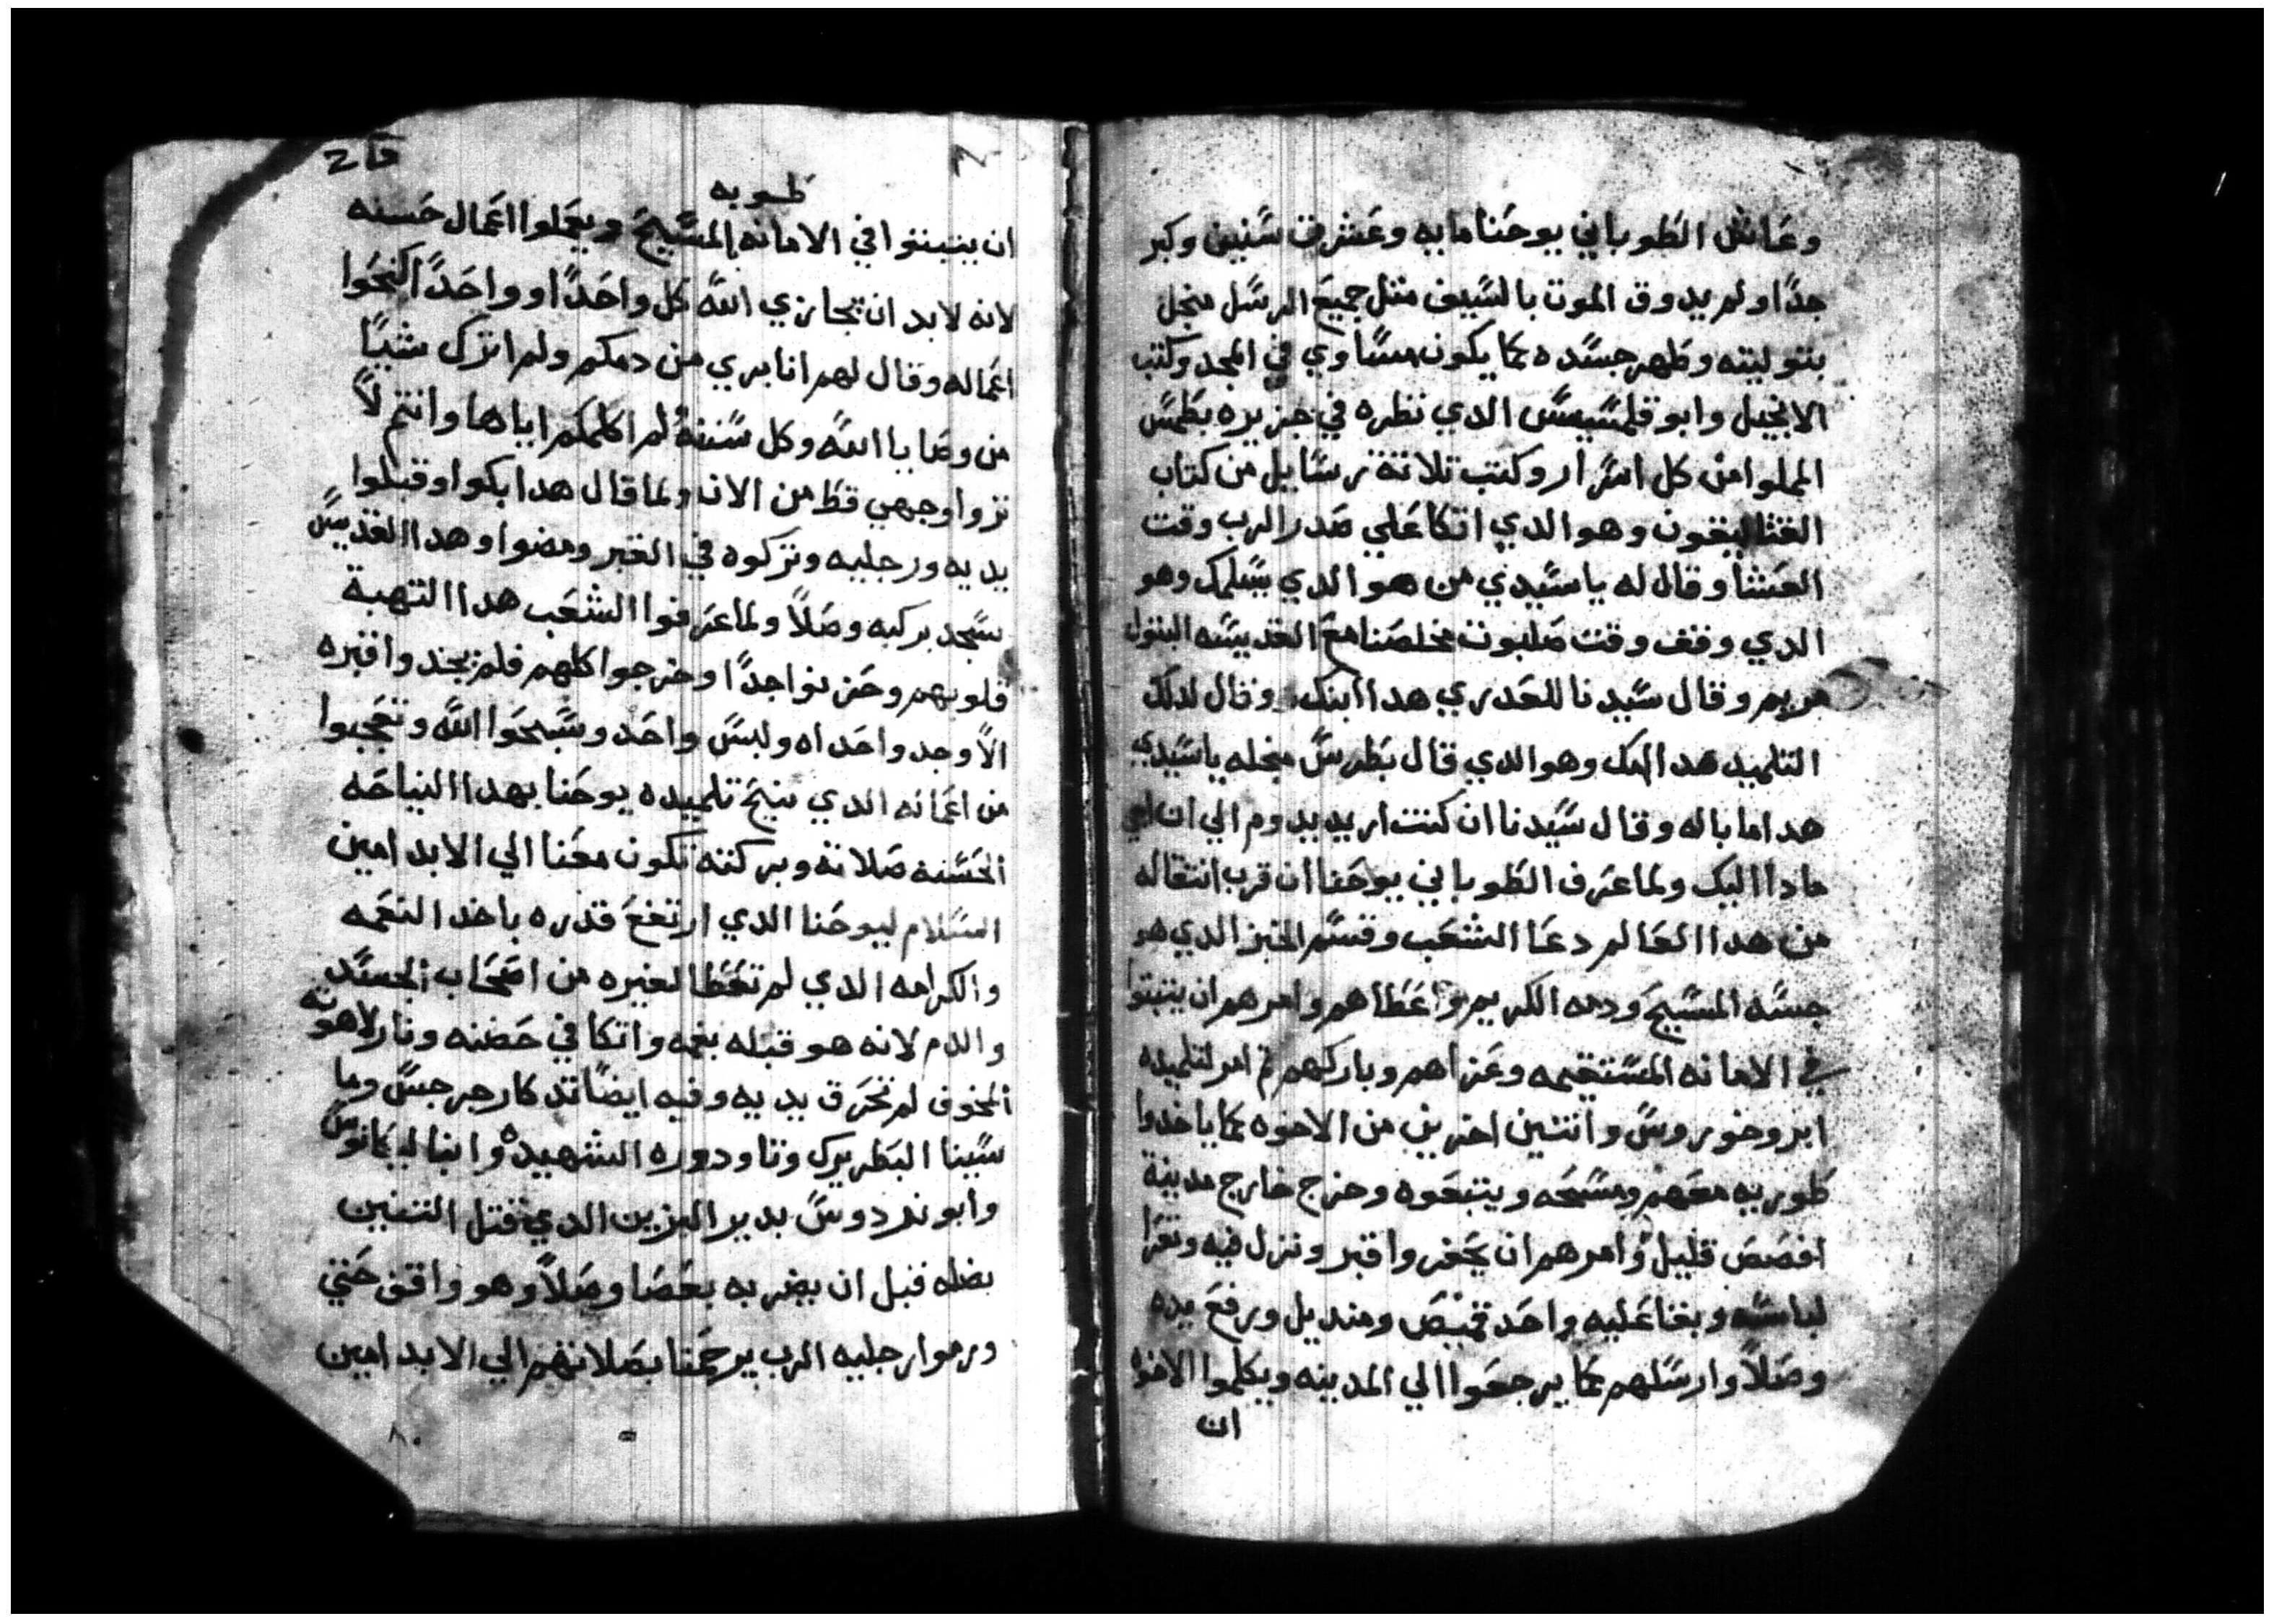 وعاش الطوباني يوحنا مايه وعشرة سنين وكبر
جدا ولم يدوق الموت بالسيف متل جميع الرسل منجل
بتوليته وطهر جسده كما يكون مساوي في المجد وكتب
الانجيل وابوقلمسيس الدي نظره في جزيره بطمس
المملوا من كل اسرار وكتب تلاتة رسايل من كتاب
القثاليقون وهو الدي اتكا علي صدر الرب وقت
العشا وقال له يا سيدي من هو الدي يسلمك وهو
الدي وقف وقت صلبوت مخلصنا مع القديسه البتول
مريم وقال سيدنا للعدري هدا ابنك وقال لدلك
التلميد هده امك وهو الدي قال بطرس منجله يا سيدي
هدا ما باله وقال سيدنا ان كنت اريد يدوم الي ان اجي
مادا اليك ولما عرف الطوباني يوحنا ان قرب انتقاله
من هدا العالم دعا الشعب وقسم الخبز الدي هو
جسد المسيح ودمه الكريم واعطاهم وامرهم ان يتبتوا
في الامانه المستقيمه وعزاهم وباركهم تم امر لتلميده
ابروخوروس واتنين اخرين من الاخوه كما ياخدوا
طوريه معهم ومسحه ويتبعوه وخرج خارج مدينة
افصص قليل وامرهم ان يحفروا قبر ونزل فيه وتعرا
لباسه وبقا عليه واحد قميص ومنديل ورفع يده
وصلا وارسلهم كما يرجعوا الي المدينه ويكلموا الاخوه
ان
طوبه
ان يتبتوا في الامانه بالمسيح ويعملوا اعمال حسنه
لانه لا بد ان يجازي الله كل واحدا وواحدا كنحوا
اعماله وقال لهم انا بري من دمكم ولم اترك شيا
من وصايا الله وكل سننه لم اكلمكم اياها وانتم لا
تروا وجهي قط من الان ولما قال هدا بكوا وقبلوا
يديه ورجليه وتركوه في القبر ومضوا وهدا القديس
سجد بركبه وصلا ولما عرفوا الشعب هدا التهبة
قلوبهم وحزنوا جدا وخرجوا كلهم فلم يجدوا قبره
الا وجدوا حداه وليس واحد وسبحوا الله وتعجبوا
من اعماله الدي نيح تلميده يوحنا بهدا النياحه
الحسنه صلاته وبركته تكون معنا الي الابد امين
السلام ليوحنا الدي ارتفع قدره باخد النعمه
والكرامه الدي لم تعطا لغيره من اصحاب الجسد
والدم لانه هو قبله بفمه واتكا في حضنه ونار لاهوته
المخوف لم تحرق يديه وفيه ايضا تدكار جرجس وما
سينا البطريرك وتاودوره الشهيده وانبا ليكانوس
وابوندروس بدير البزين الدي قتل التنين
بضله قبل ان يضربه بعصا وصلا وهو واقف حتي
ورموا رجليه الرب يرحمنا بصلاتهم الي الابد امين